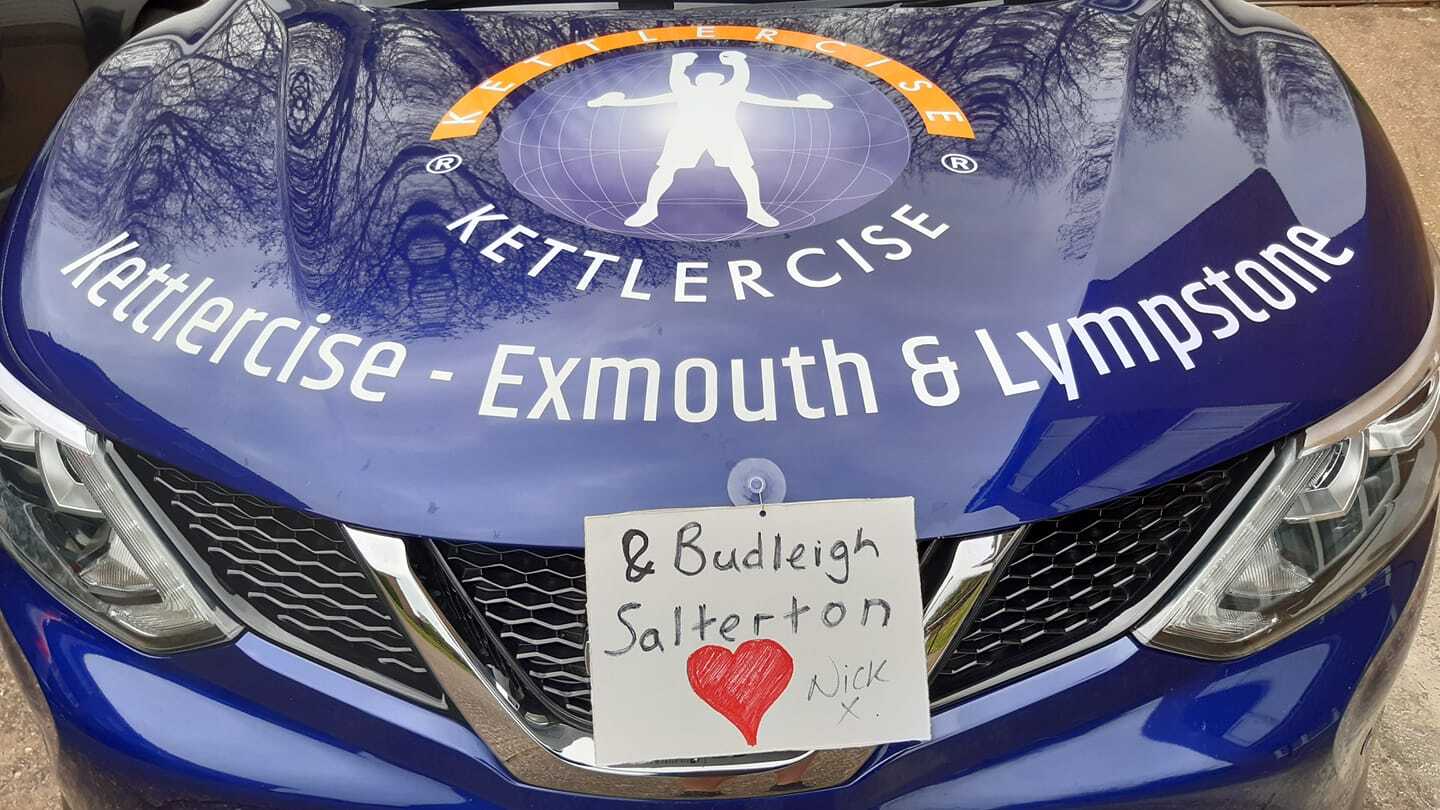 KETTLERCISE
® ®
KETTLERCISE
Kettlercise - Exmouth & Lympstone
& Budleigh
Salterton
Nick
x.